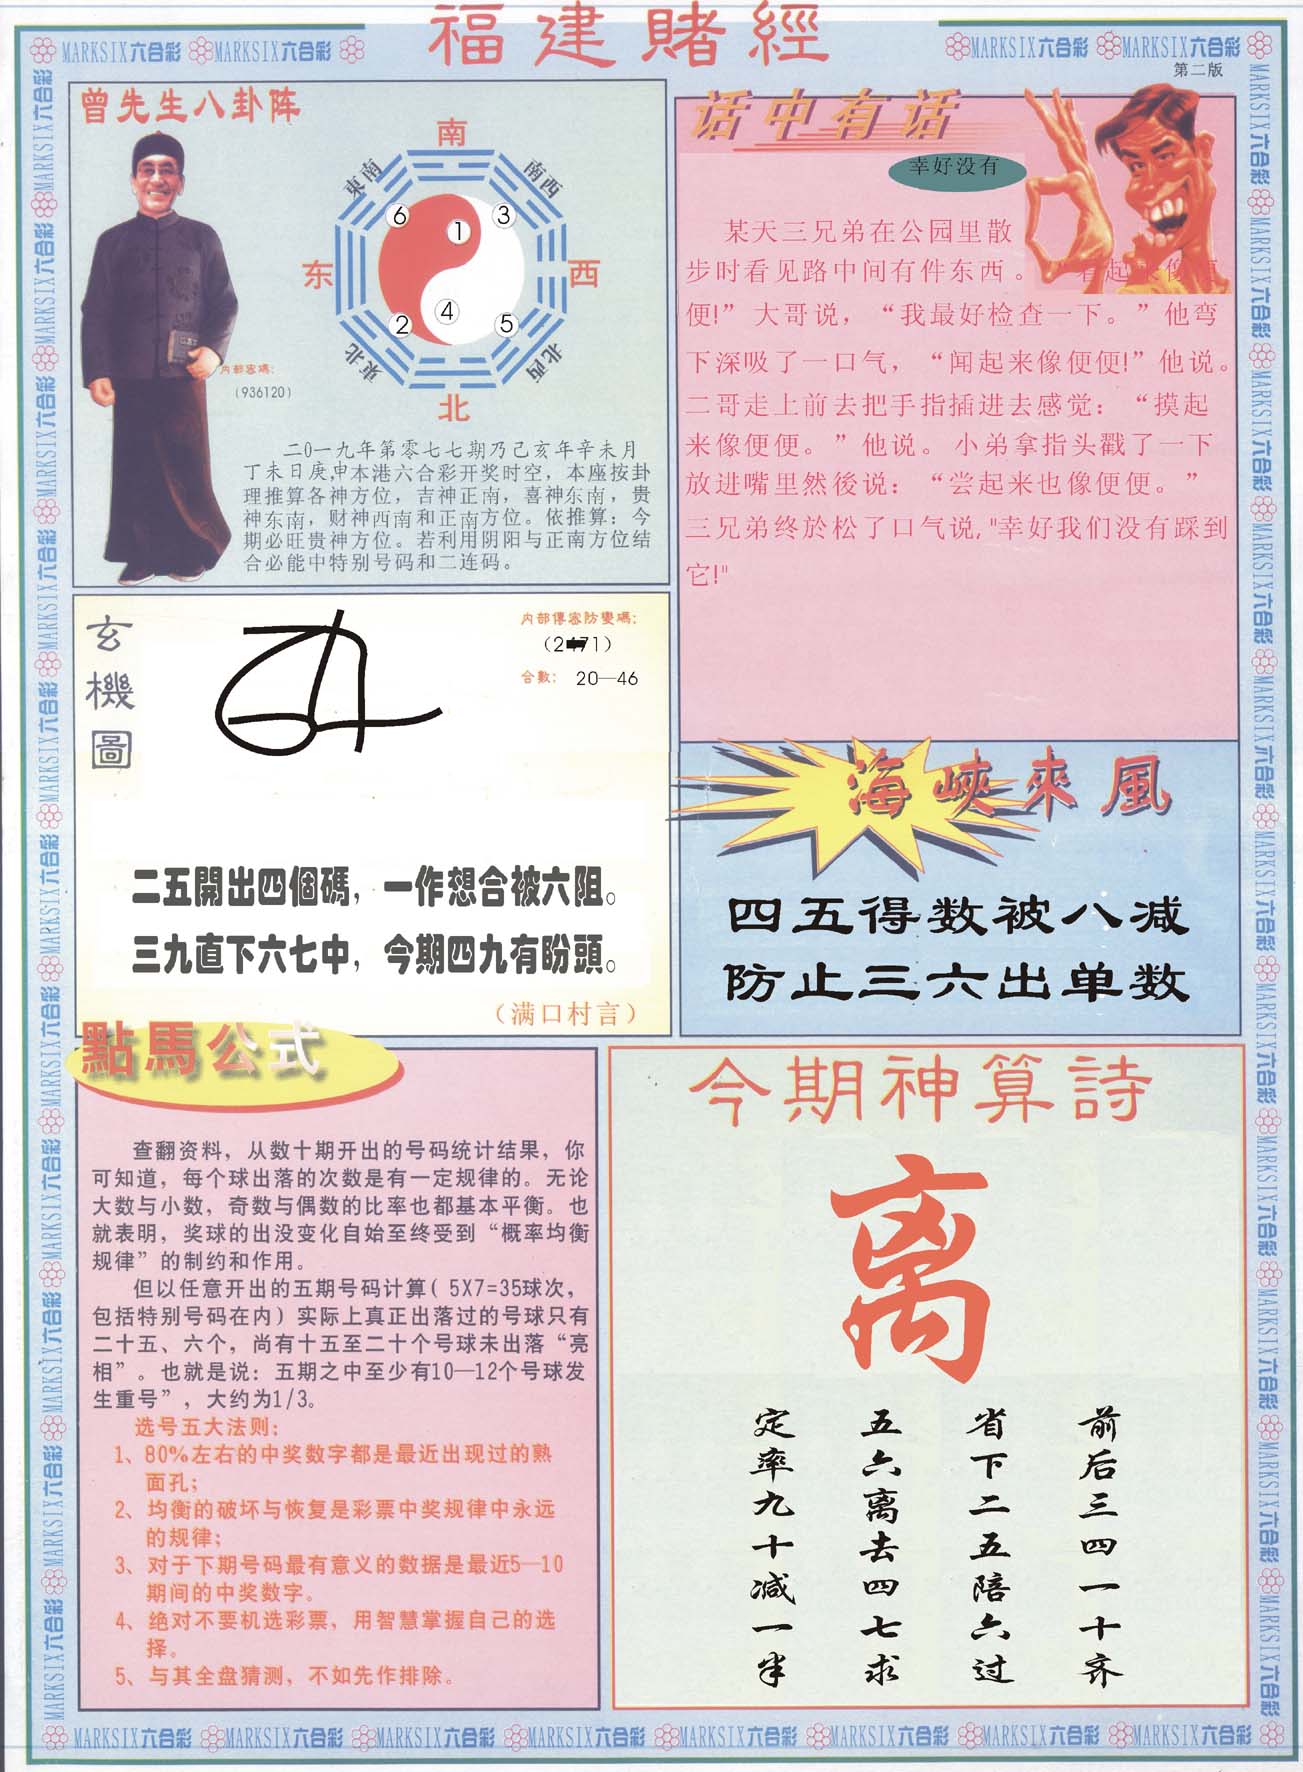 福建賭經
MARKSIX六合彩 MARKSIX六合彩
MARKSIX六合彩 MARKSIX六合彩
第二版
曾先生八卦阵
南
東南
南西
6
1
3
东
西
2
4
5
東北
北西
北
内部密碼：
（936120）
二0一九年第零七七期乃己亥年辛未月
丁未日庚,申本港六合彩开奖时空，本座按卦
理推算各神方位，吉神正南，喜神东南，贵
神东南，财神西南和正南方位。依推算：今
期必旺贵神方位。若利用阴阳与正南方位结
合必能中特别号码和二连码。
话中有话
幸好没有
某天三兄弟在公园里散
步时看见路中间有件东西。“看起来像便
便!”大哥说，“我最好检查一下。”他弯
下深吸了一口气，“闻起来像便便!”他说。
二哥走上前去把手指插进去感觉：“摸起
来像便便。”他说。小弟拿指头戳了一下
放进嘴里然後说：“尝起来也像便便。”
三兄弟终於松了口气说,"幸好我们没有踩到
它!"
玄機圖
内部傳密防變碼：
合數： 20—46
二五開出四個碼，一作想合被六阻。
三九直下六七中，今期四九有盼頭。
（满口村言）
海峽來風
四五得数被八减
防止三六出单数
點馬公式
查翻资料，从数十期开出的号码统计结果，你
可知道，每个球出落的次数是有一定规律的。无论
大数与小数，奇数与偶数的比率也都基本平衡。也
就表明，奖球的出没变化自始至终受到“概率均衡
规律”的制约和作用。
但以任意开出的五期号码计算( 5X7=35球次，
包括特别号码在内）实际上真正出落过的号球只有
二十五、六个，尚有十五至二十个号球未出落“亮
相”。也就是说：五期之中至少有10—12个号球发
生重号”，大约为1/3。
选号五大法则：
1、80%左右的中奖数字都是最近出现过的熟
面孔；
2、均衡的破坏与恢复是彩票中奖规律中永远
的规律；
3、对于下期号码最有意义的数据是最近5—10
期间的中奖数字。
4、绝对不要机选彩票，用智慧掌握自己的选
择。
5、与其全盘猜测，不如先作排除。
今期神算詩
离
前后三四一十齐
省下二五陪六过
五六离去四七求
定率九十减一半
MARKSIX六合彩 MARKSIX六合彩 MARKSIX六合彩 MARKSIX六合彩 MARKSIX六合彩 MARKSIX六合彩 MARKSIX六合彩 MARKSIX六合彩